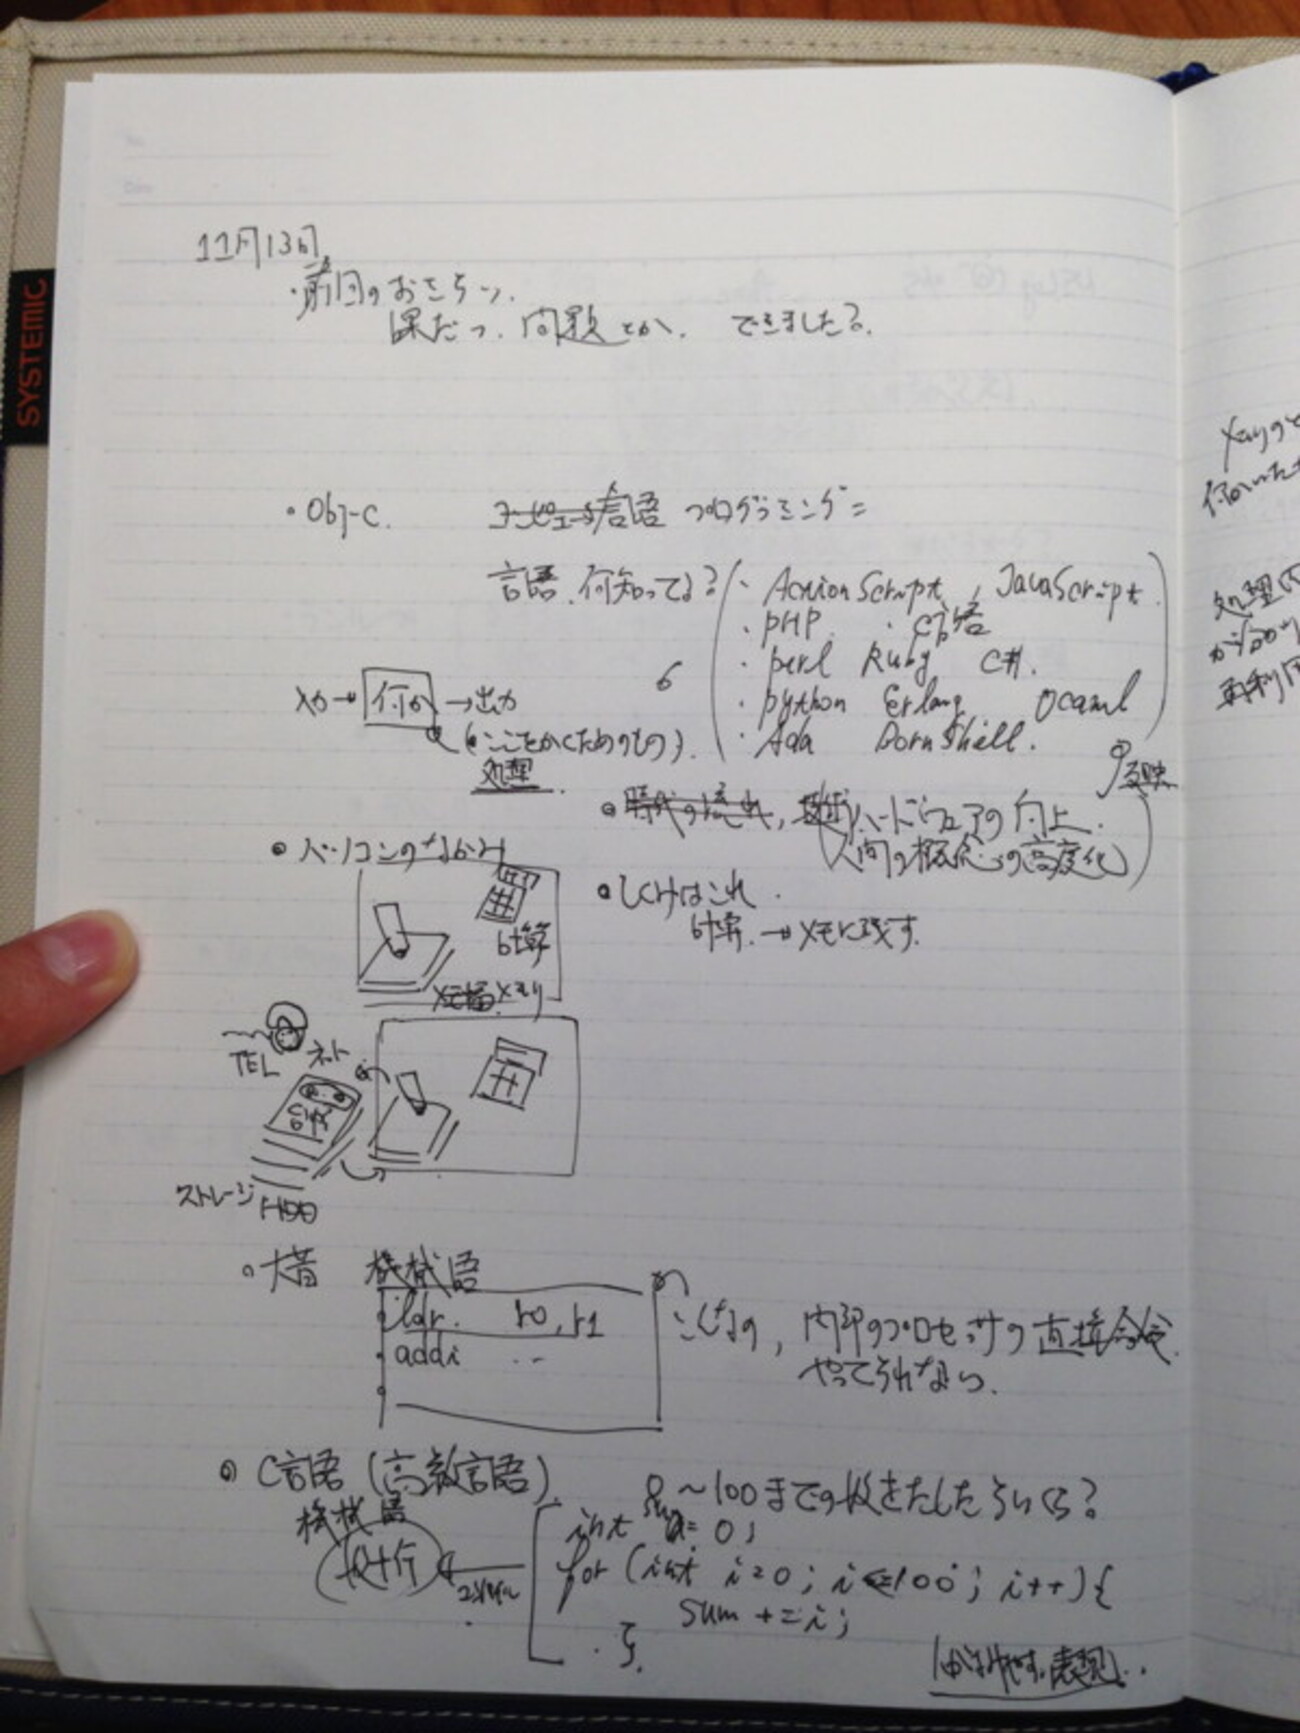 SYSTEMIC
11月13日
・前回のおさらい
課だい、問題とか、できました?
・Obj-C. 言語 プログラミング
言語、何知ってる?
・ActionScript, JavaScript
・PHP ・C言語
・perl Ruby C#.
・python Erlang Ocaml
・Ada BornShell.
6
入力→何か→出力
(ここをかくためのもの).
処理
反映
時代の流れ, 技術 ハードウェアの向上.
人間の概念の高度化
・パソコンのなかみ
計算
メモリ
・しくみはこれ.
計算.→メモに残す.
TEL ネット
ストレージ HDD
・大昔 機械語
ldr. r0, r1
addi ..
こんなの, 内部のプロセッサの直接命令.
やってられない.
・C言語 (高級言語)
0~100までの数をたしたらいくら?
機械語
int sum = 0;
数十行
for (int i=0; i<=100; i++){
sum += i;
}.
表現
メモリの
処理
再利用